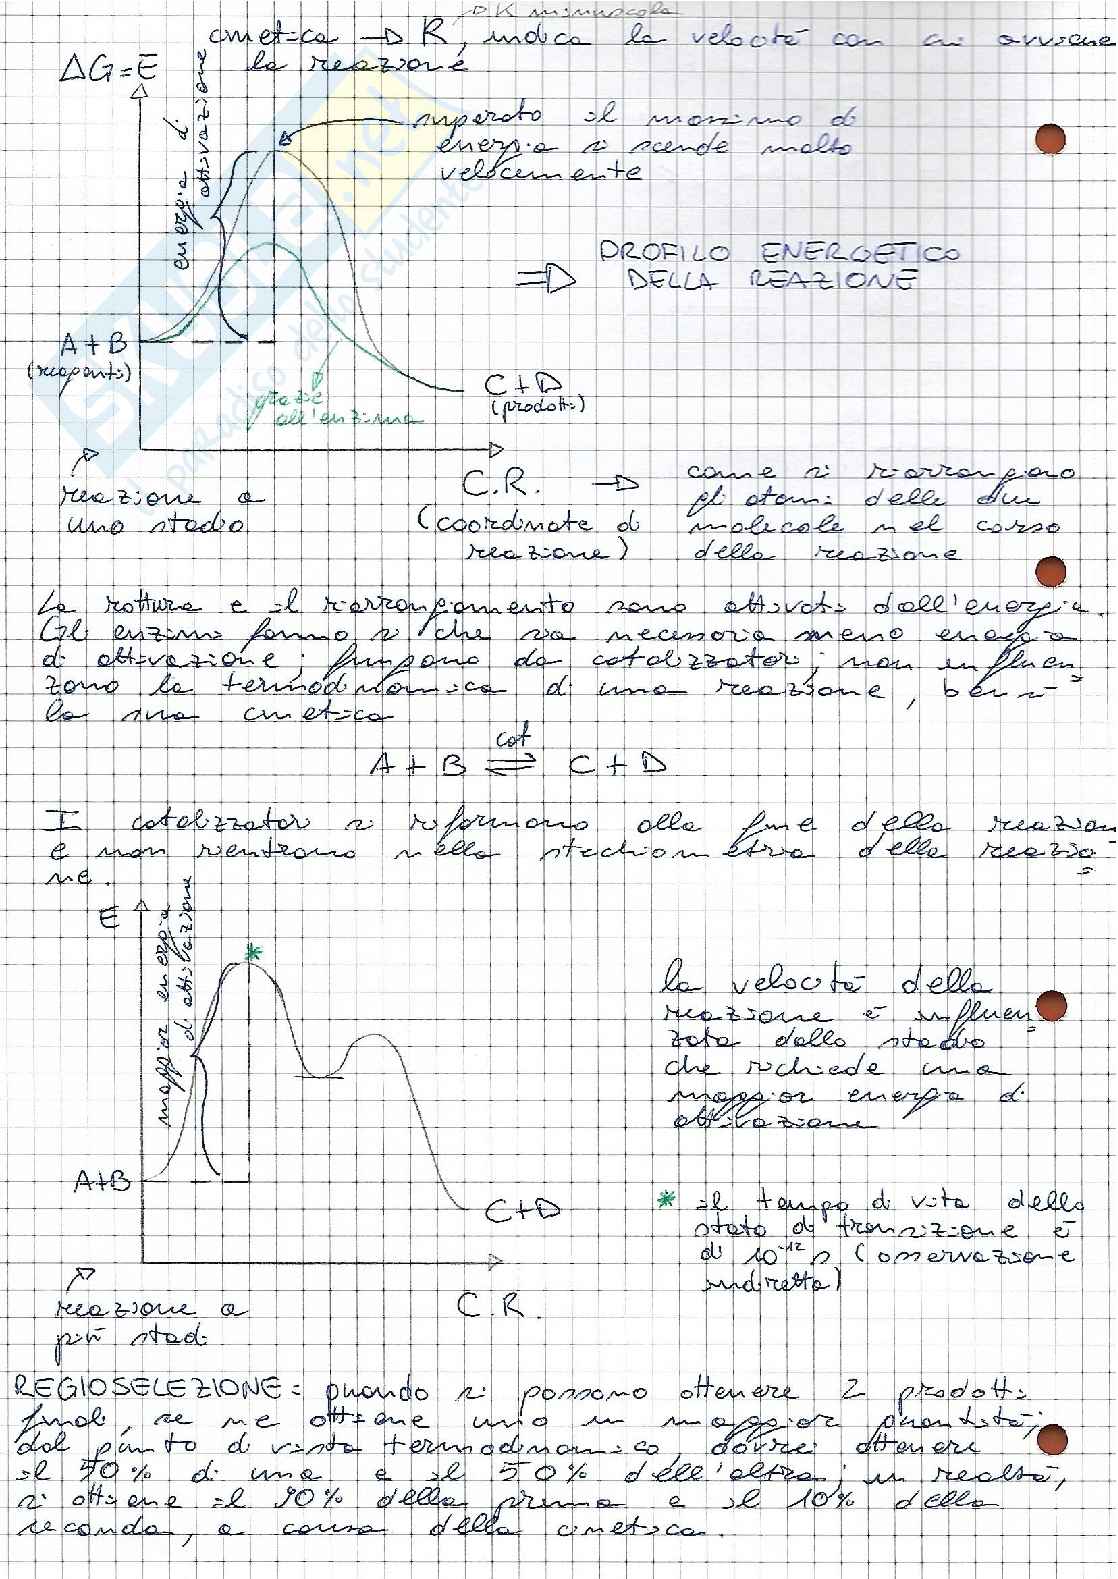 K minuscola
cinetica → R, indica la velocità con cui avviene
la reazione
ΔG = E
energia di
attivazione
superato il massimo di
energia si scende molto
velocemente
⇒ PROFILO ENERGETICO
DELLA REAZIONE
A + B
(reagenti)
C + D
(prodotti)
grazie
all'enzima
reazione a
uno stadio
C.R. → come si riarrangiano
(coordinate di
reazione)
gli atomi delle due
molecole nel corso
della reazione
La rottura e il riarrangiamento sono attivati dall'energia.
Gli enzimi fanno sì che sia necessaria meno energia
di attivazione; fungono da catalizzatori; non influen
zano la termodinamica di una reazione, bensì
la sua cinetica
cat
A + B ⇌ C + D
I catalizzatori si riformano alla fine della reazion
e non rientrano nella stechiometria della reazio
ne.
E
maggior energia
di attivazione
*
la velocità della
reazione è influen
zata dallo stadio
che richiede una
maggior energia di
attivazione
A+B
C+D
* il tempo di vita dello
stato di transizione è
di 10⁻¹² s (osservazione
indiretta)
reazione a
più stadi
C.R.
REGIOSELEZIONE = quando si possono ottenere 2 prodotti
finali, se ne ottiene uno in maggior quantità;
dal punto di vista termodinamico, dovrei ottenere
il 50% di una e il 50% dell'altra; in realtà,
si ottiene il 90% della prima e il 10% della
seconda, a causa della cinetica.